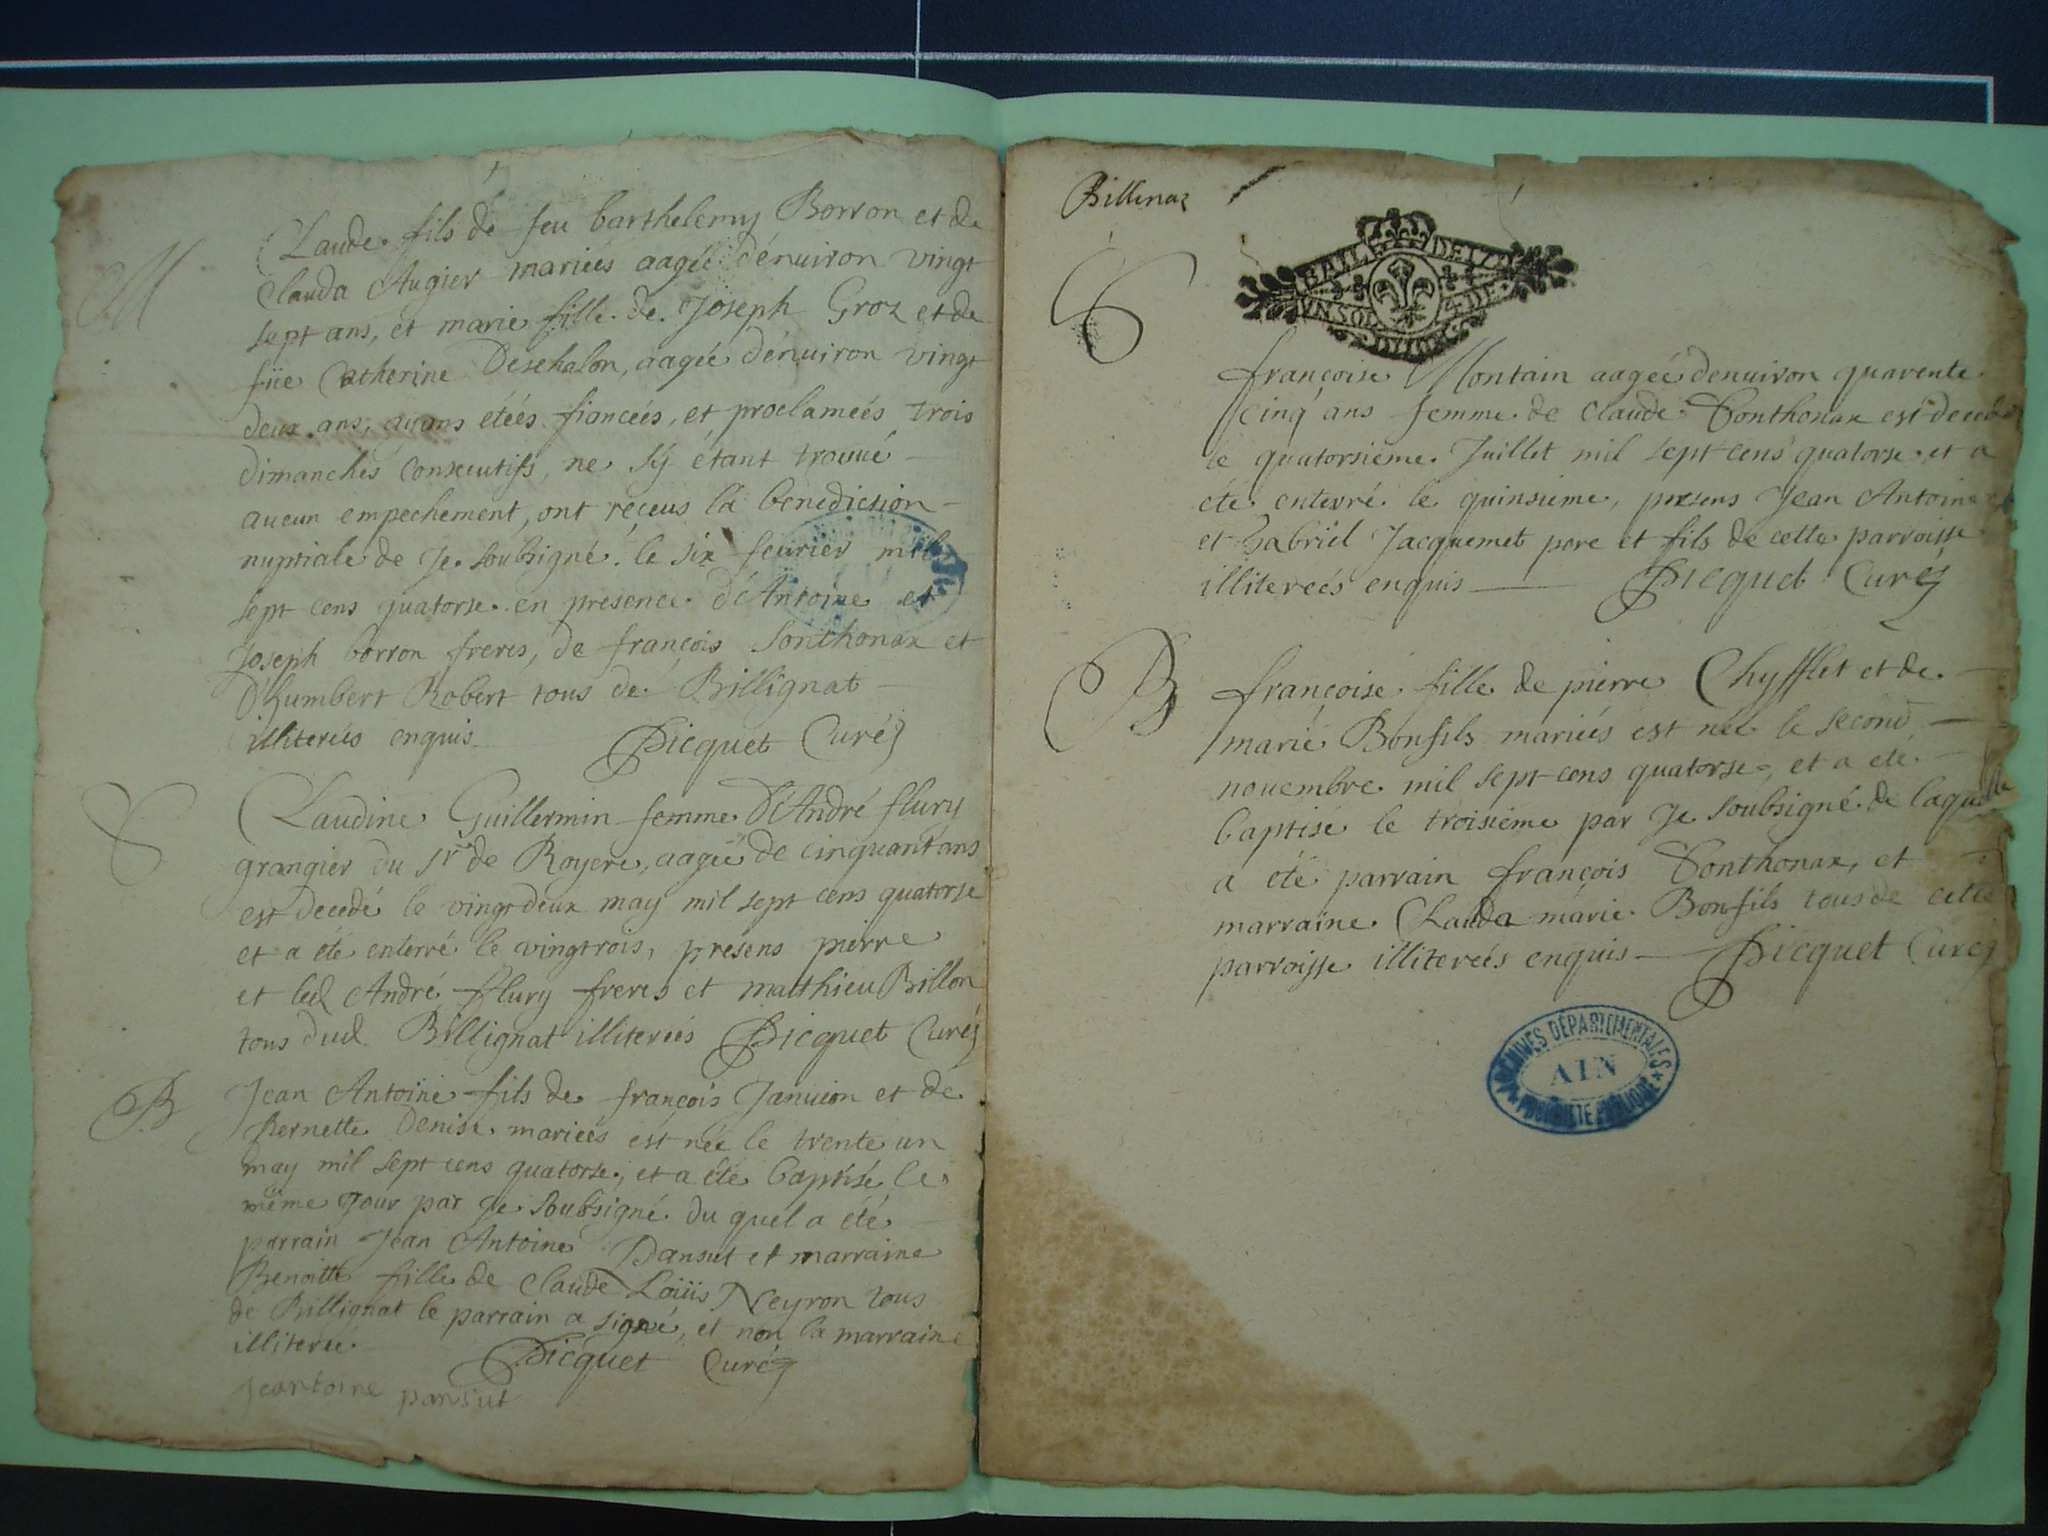 M
Claude fils de feu barthelemy Borron et de
Clauda Augier mariées aagée dénuiron vingt
sept ans, et marie fille de Joseph Groz et de
füe Catherine Deschalon, aagée dénuiron vingt
deux ans, aians étéés fiancéés, et proclaméés trois
dimanches consecutifs, ne sÿ étant trouué
aucun empechement, ont réceus la benediction
nuptiale de Je soubsigné le six feurier mil
sept cens quatorse en presence d'Antoine et
Joseph borron freres, de françois Sonthonax et
d'humbert Robert tous de Billignat
illiterés enquis Picquet Curé
S
Claudine Guillermin femme D'André flury
grangier du Sr de Royere, aagée de cinquant ans
est decedé le vingt deux may mil sept cens quatorse
et a été enterré le vingtrois, présens pierre
et led André fflury freres et matthieu Billon
tous dud Billignat illiteréés Picquet Curé
B
Jean Antoine fils de françois Januion et de
Pernette Denise mariéés est née le trente un
may mil sept cens quatorse, et a été baptisé le
même jour par Je Soubsigné du quel a été
parrain Jean Antoine Pansut et marraine
Benoitte fille de Claude Loüis Neyron tous
de Billignat le parrain a signé, et non la marraine
illiteree Picquet Curé
Jeantoine pansut
Billenaz
S
BAIL DE
UN SOL
françoise Montain aagéé denuiron quarente
cinq ans femme de Claude Sonthonax est
le quatorsieme Juillet mil sept cens quatorse et a
été enterré le quinsieme, presens Jean Antoine
et Gabriël Jacquemet pere et fils de cette parroisse
illiteréés enquis Picquet Curé
B
françoise fille de pierre Chyfflet et de
marie Bonfils mariéés est née le second
nouembre mil sept cens quatorse, et a été
baptisé le troisième par Je soubsigné de laquelle
a été parrain françois Sonthonax, et
marraine Clauda marie Bonfils tous de cette
parroisse illiteréés enquis Picquet Curé
ARCHIVES DÉPARTEMENTALES
AIN
PROPRIÉTÉ PUBLIQUE